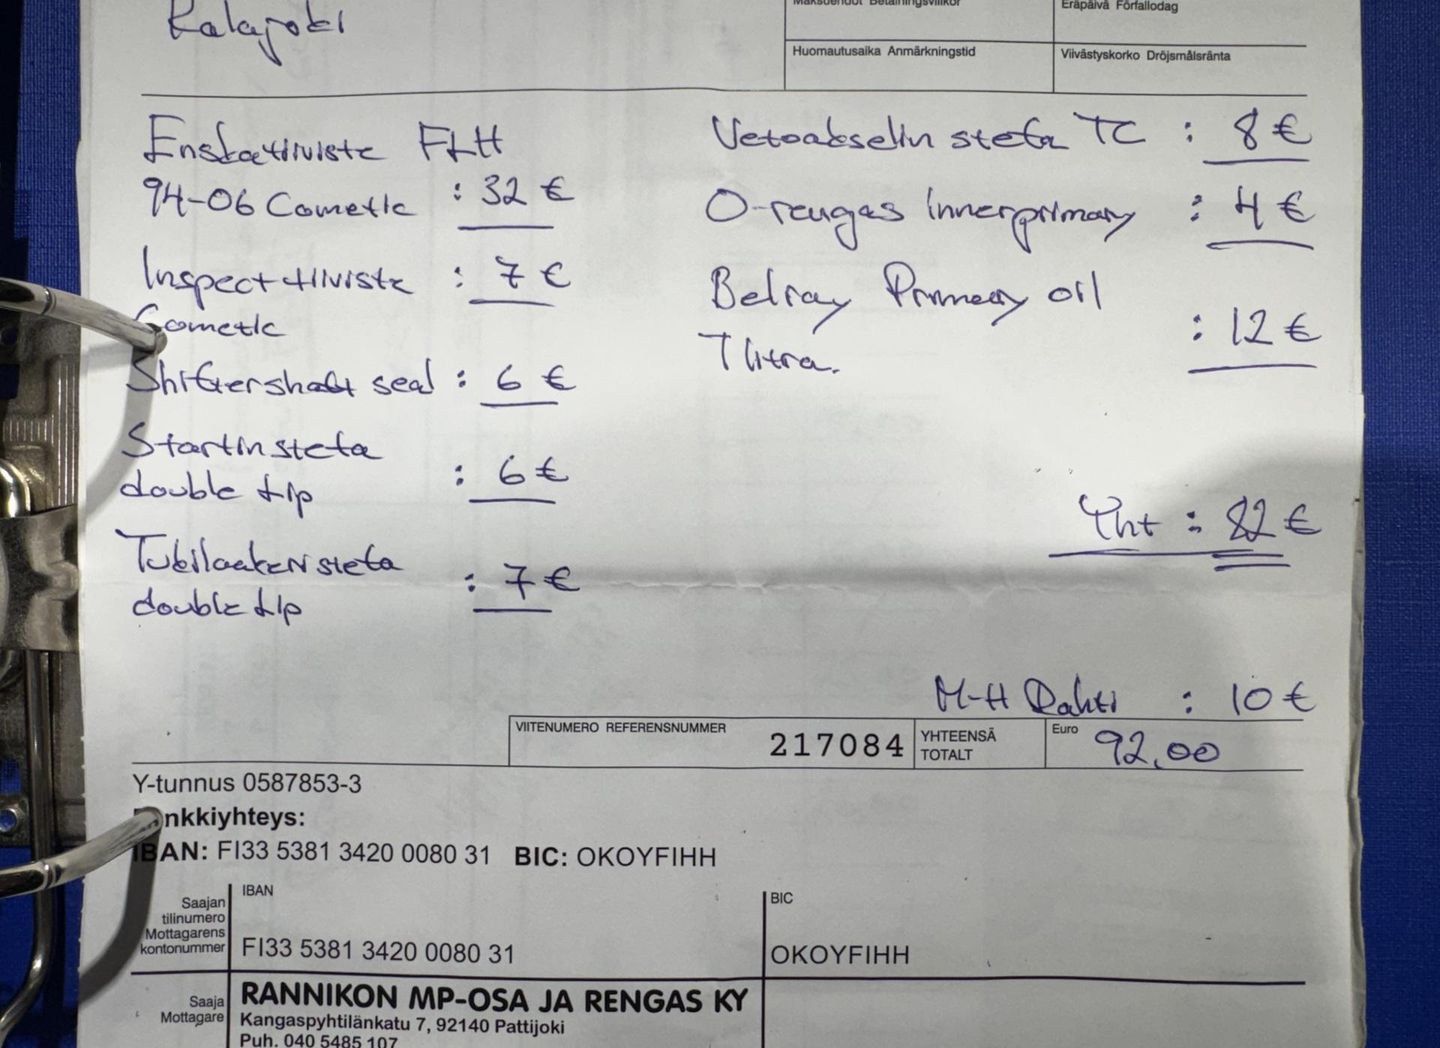 Kalajoki
Maksuehdot Betalningsvillkor
Eräpäivä Förfallodag
Huomautusaika Anmärkningstid
Viivästyskorko Dröjsmålsränta
Ensiötiiviste FLH
94-06 Cometic : 32 €
Inspect tiiviste : 7 €
Cometic
Shiftershaft seal : 6 €
Startin stefa
double Lip : 6 €
Tukilaakeri stefa
double Lip : 7 €
Vetoakselin stefa TC : 8 €
O-rengas innerprimary : 4 €
Belray Primary oil
1 litra. : 12 €
Yht : 82 €
M-H Rahti : 10 €
VIITENUMERO REFERENSNUMMER
217084
YHTEENSÄ
TOTALT
Euro
92,00
Y-tunnus 0587853-3
nkkiyhteys:
IBAN: FI33 5381 3420 0080 31 BIC: OKOYFIHH
Saajan
tilinumero
Mottagarens
kontonummer
IBAN
FI33 5381 3420 0080 31
BIC
OKOYFIHH
Saaja
Mottagare
RANNIKON MP-OSA JA RENGAS KY
Kangaspyhtilänkatu 7, 92140 Pattijoki
Puh. 040 5485 107